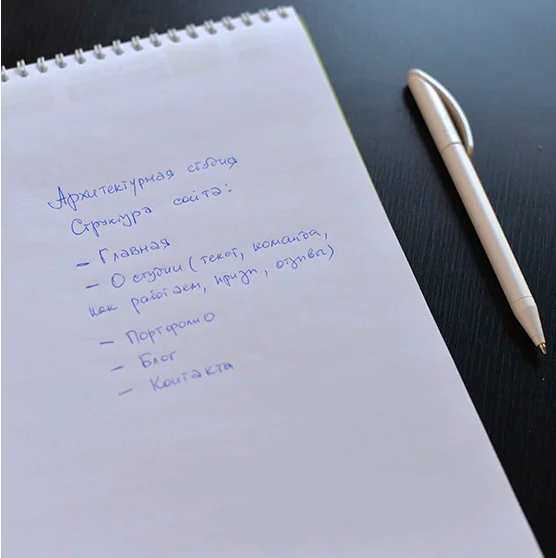 Архитектурная студия
Структура сайта:
– Главная
– О студии (текст, команда,
как работаем, призы, отзывы)
– Портфолио
– Блог
– Контакты